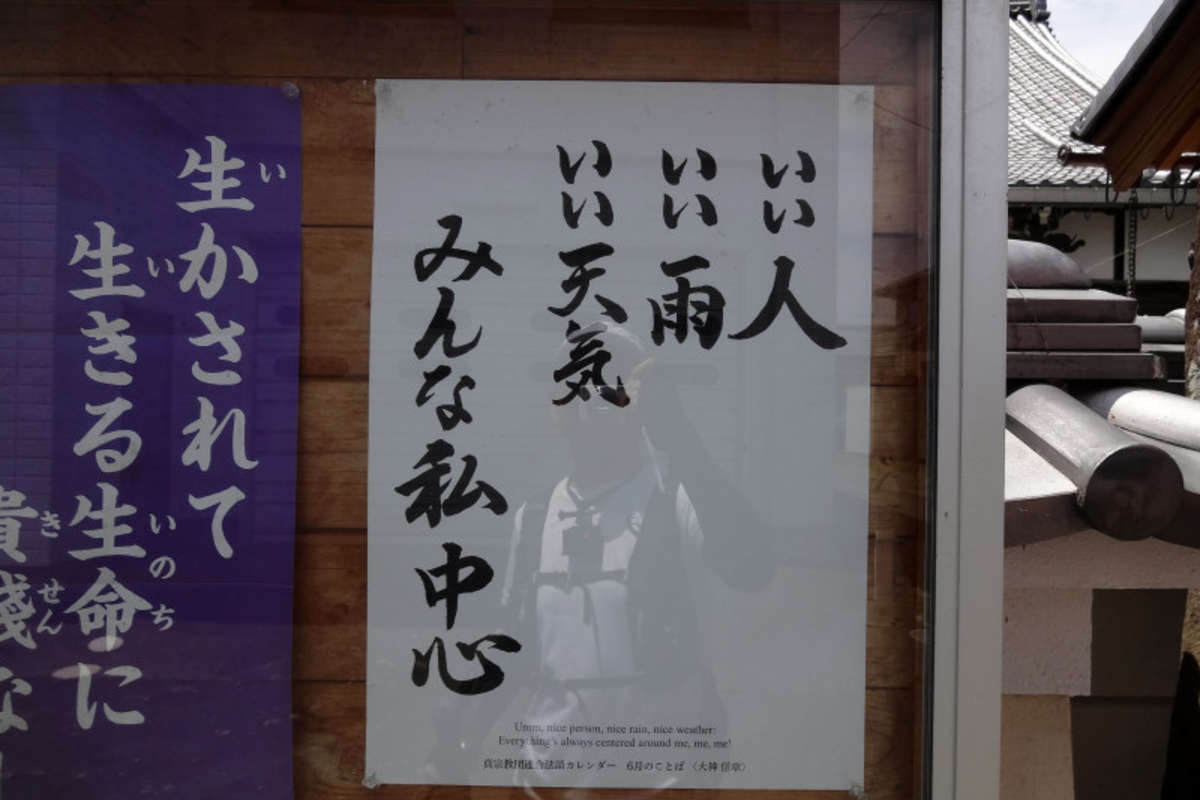 いい人
いい雨
いい天気
みんな私中心
Umm, nice person, nice rain, nice weather:
Everything's always centered around me, me, me!
真宗教団連合法語カレンダー 6月のことば
生かされて
生きる生命に
貴賤な